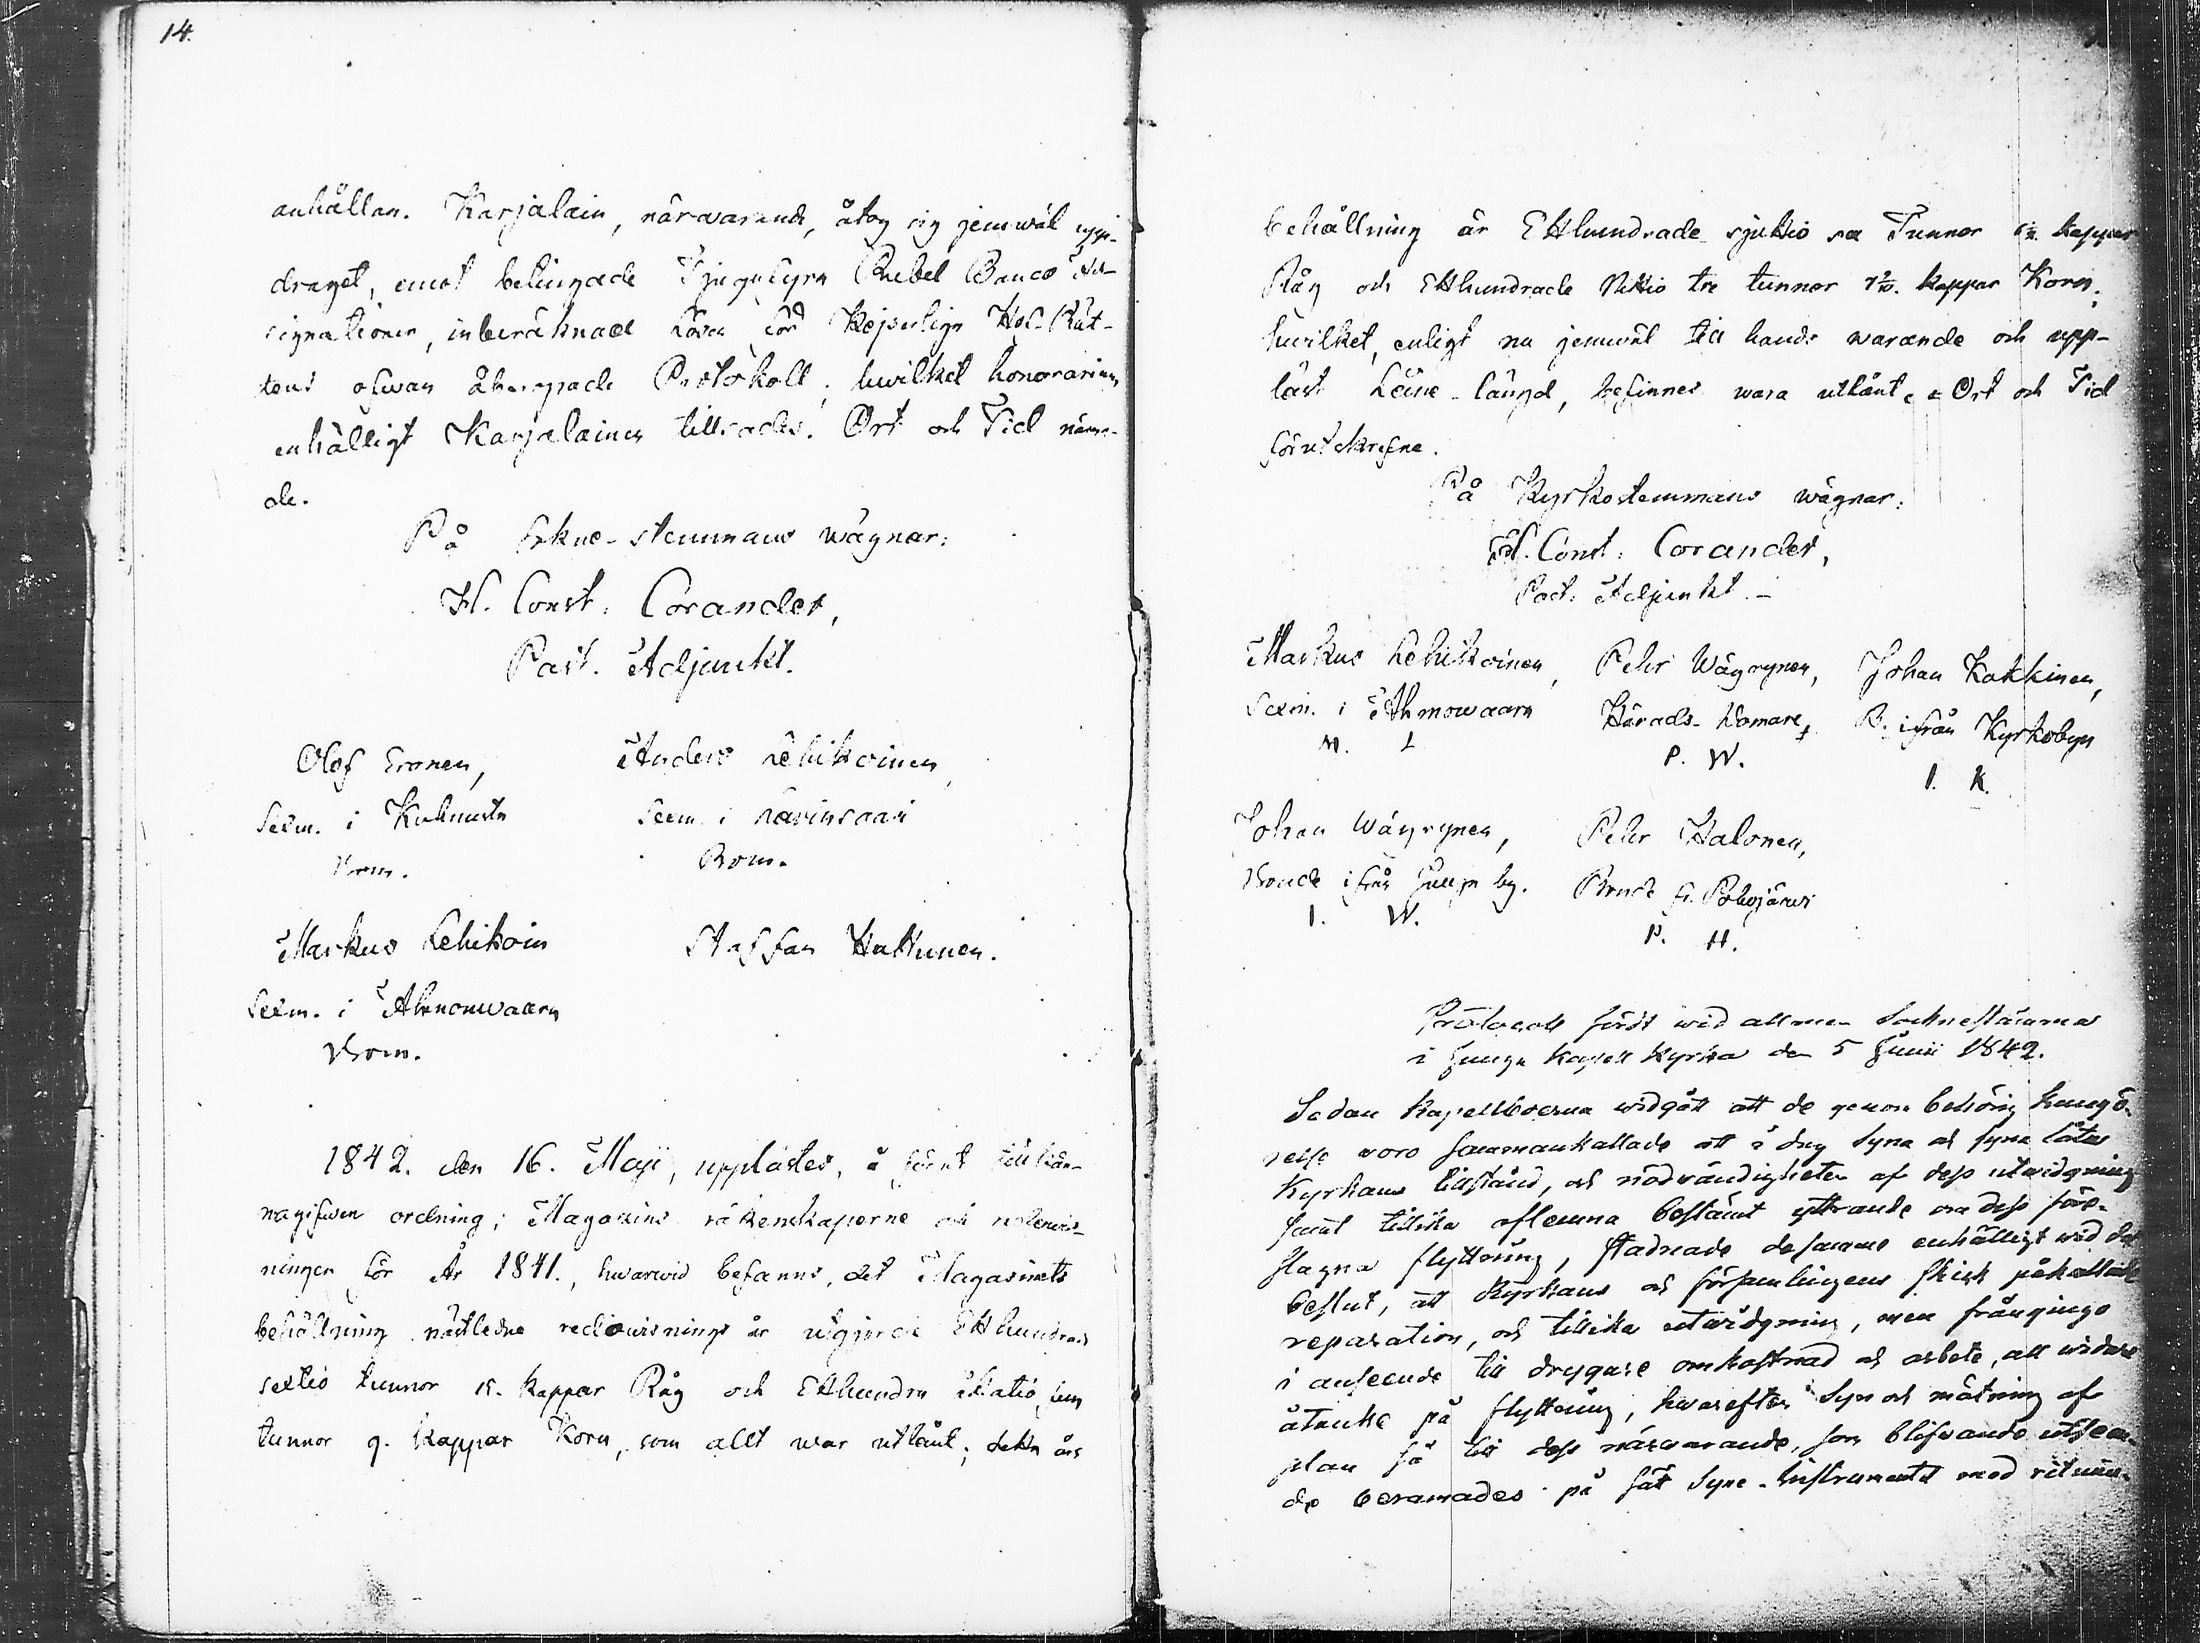 14.
anhållan. Karjalain, närwarande, åtog sig jemwäl upp-
draget, emot betingade Tjugufyra Rubel Banco As-
signationer, inberäknad lösen för Kejserliga Hof-Rät-
tens ofwan åberopade Protokoll; hwilket honorarium
enhälligt Karjalainen tillsades. Ort och Tid näm-
de.
På Sokne-stemmans wägnar:
H. Const: Corander,
Past. Adjunkt.
Olof Eronen,
Sexm. i Kuhmusta
Bom.
Anders Lehikoinen,
Sexm. i
Bom.
Markus Lehikoin
Sexm. i Ahmowaara
Bom.
Staffan Hattunen.
1842. den 16. Maji, upplästes, å förut tillkän-
nagifwen ordning; Magasins räkenskaperne och redowis-
ningen för År 1841., hwarwid befanns, det Magasinets
behållning nästledne redowisnings år utgjorde Etthundrad
sextio tunnor 15. kappar Råg och Etthundra åttatio fem
tunnor 9. kappar Korn, som allt war utlånt; detta års
behållning är Etthundrade sjuttio sex Tunnor kappar
Råg och Etthundrade Nittio tre tunnor kappar Korn;
hwilket, enligt nu jemwäl till hands warande och upp-
läst Låne-längd, befinnes wara utlånt. Ort och Tid
förutskrefne.
På Kyrkostemmans wägnar:
H. Const: Corander,
Past. Adjunkt.
Markus Lehikoinen,
Sexm. i Ahmowaara
M. L
Pehr Wäyrynen,
Härads-Domare,
P. W.
Johan Kokkinen,
B. ifrån Kyrkobyn
I. K.
Johan Wäyrynen,
Bonde ifrån Juuga by.
I. W.
Pehr Halonen,
Bonde fr. Polvijärvi
P. H.
Protocoll fördt wid allmen Sockneståmma
i Juuga Kapell Kyrka den 5 Junii 1842.
Sedan Kapellboerna widgått att de genom behörig kungö-
relse woro sammankallade att i dag Syna och syna låta
Kyrkans tillstånd, och nödvändigheten af dess utwidgning
samt tillika aflemna bestämt yttrande om dess före-
slagna flyttning, stadnade desamme enhälligt wid det
beslut, att Kyrkans och församlingens skick påkallade
reparation, och tillika utwidgning, men frångingo
i anseende till drygare omkostnad och arbete, all widare
åtanke på flyttning, hwarefter Syn och mätning af
plan så till dess närwarande, som blifwande utseen-
de weranades på sätt Syne-Instrumentet med ritnin-